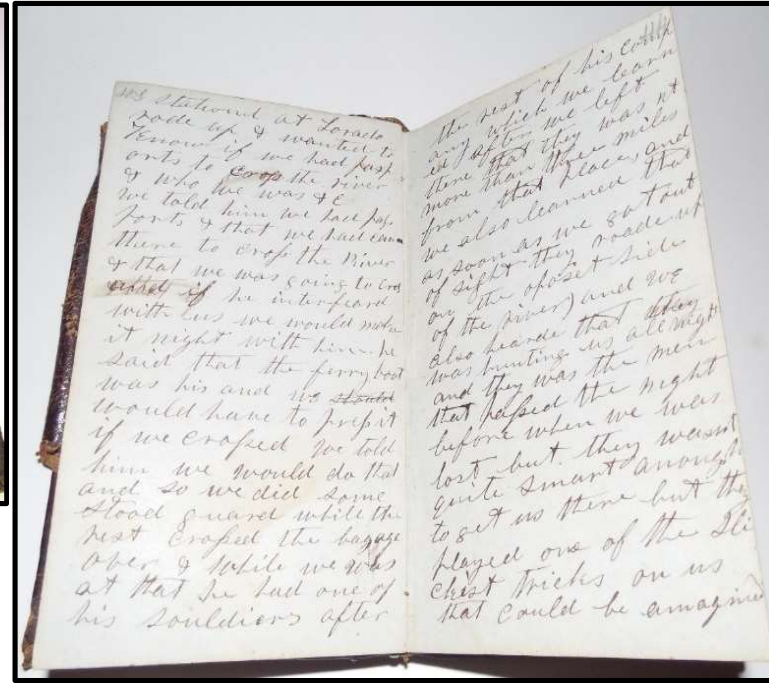 stationd at Lorado
rode up & wanted to
know if we had pasp
orts to crop the river
& who we was & C
we told him we had pas
ports & that we had came
there to crop the River
& that we was going to crop
and if he interfeard
with us we would make
it night with him. he
said that the ferry boat
was his and we should
would have to prepit
if we cropped we told
him we would do that
and so we did some
stood guard while the
rest cropped the bagage
over & while we was
at that he had one of
his souldiers after
the rest of his comp
any which we learn
ed after we left
there that they was nt
more than three miles
from that place, and
we also learned that
as soon as we got out
of sight they roade up
on the oposet side
of the river) and we
also hearde that they
was hunting us all night
and they was the men
that passed the night
before when we was
lost but they wasnt
quite smart anough
to get us there but they
played one of the sli
ckest tricks on us
that could be amagined